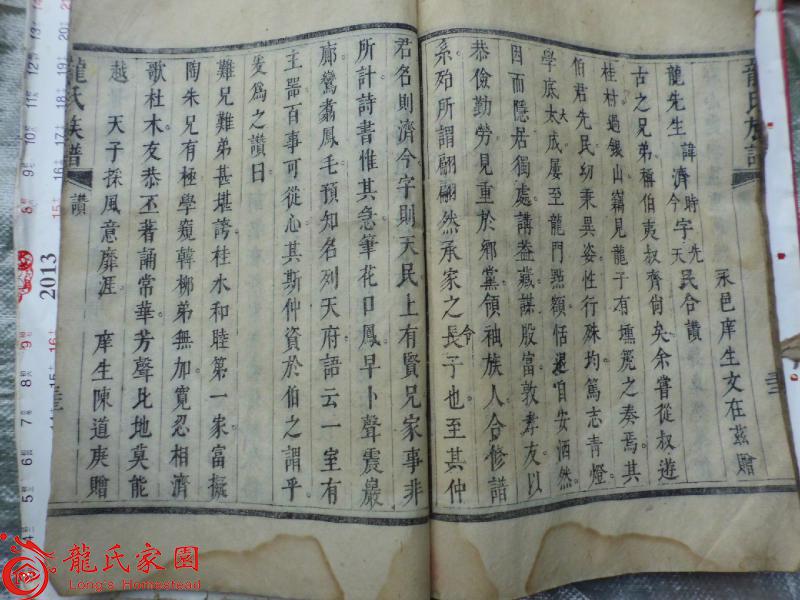 龍氏族譜
龍先生諱濟時字天先民合讚
永邑庠生文在茲贈
古之兄弟稱伯夷叔齊尚矣余嘗從叔遊
桂村過銀山竊見龍子有壎篪之奏焉其
伯君先民幼秉異姿性行殊均篤志青燈
學底大成屢至龍門點額恬退自安洒然
因而隱居獨處講益藏謀股富敦孝友以
恭儉勤勞見重於鄉黨領袖族人合修譜
系殆所謂翩翩然承家之令長子也至其仲
君名則濟今字則天民上有賢兄家事非
所計詩書惟其急筆花口鳳早卜聲震巖
廊鸞翥鳳毛預知名列天府語云一室有
主器百事可從心其斯仲資於伯之謂乎
爰為之讚曰
難兄難弟甚堪誇桂水和睦第一家富擬
陶朱兄有極學窺韓柳弟無加寬忍相濟
歌杜木友恭丕著誦常華芳聲比地莫能
越
天子採風意靡涯
庠生陳道庚贈
龍氏族譜
讚
2013
龍氏家園
Long's Homestead